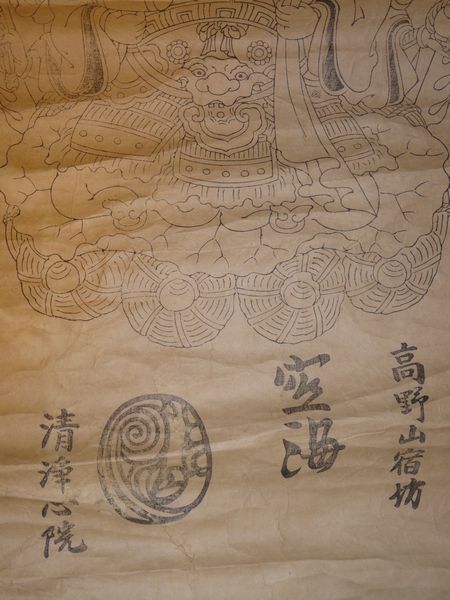 高野山宿坊
空海
清浄心院